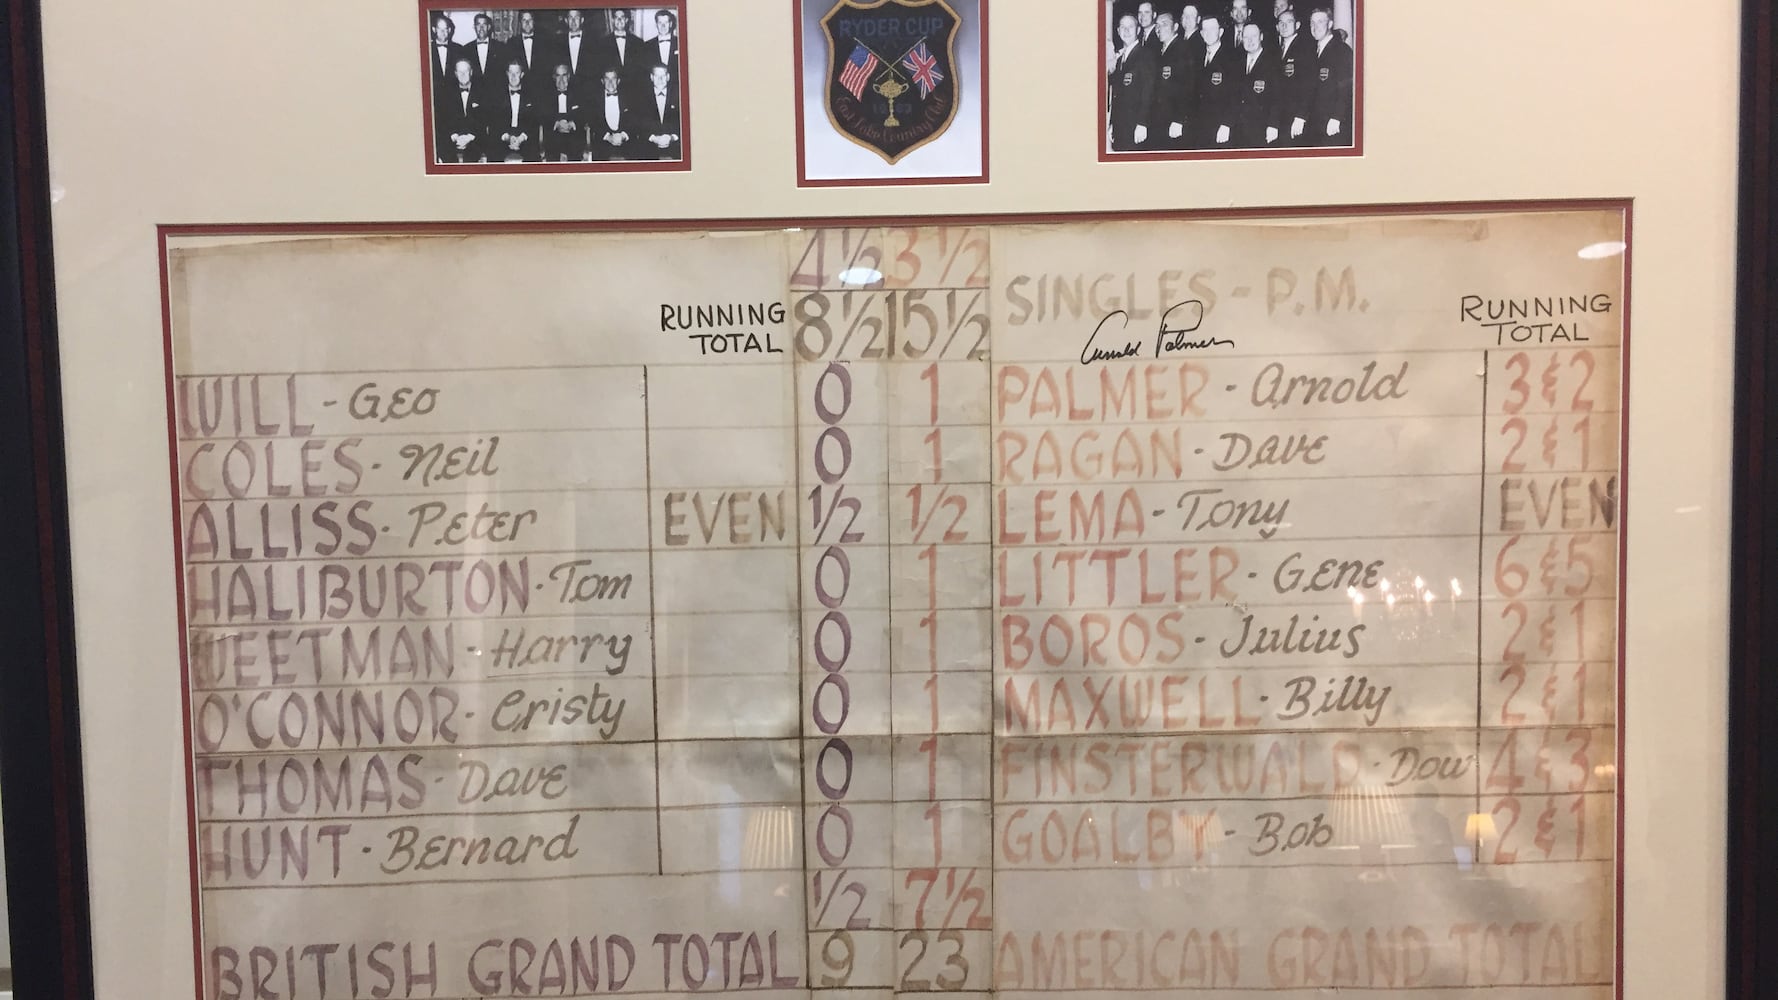 RYDER CUP
1963
East Lake Country Club
4½ 3½
RUNNING TOTAL 8½ 15½ SINGLES - P.M. RUNNING TOTAL
Arnold Palmer
WILL - Geo 0 1 PALMER - Arnold 3 & 2
COLES - Neil 0 1 RAGAN - Dave 2 & 1
ALLISS - Peter EVEN ½ ½ LEMA - Tony EVEN
HALIBURTON - Tom 0 1 LITTLER - Gene 6 & 5
WEETMAN - Harry 0 1 BOROS - Julius 2 & 1
O'CONNOR - Cristy 0 1 MAXWELL - Billy 2 & 1
THOMAS - Dave 0 1 FINSTERWALD - Dow 4 & 3
HUNT - Bernard 0 1 GOALBY - Bob 2 & 1
½ 7½
BRITISH GRAND TOTAL 9 23 AMERICAN GRAND TOTAL